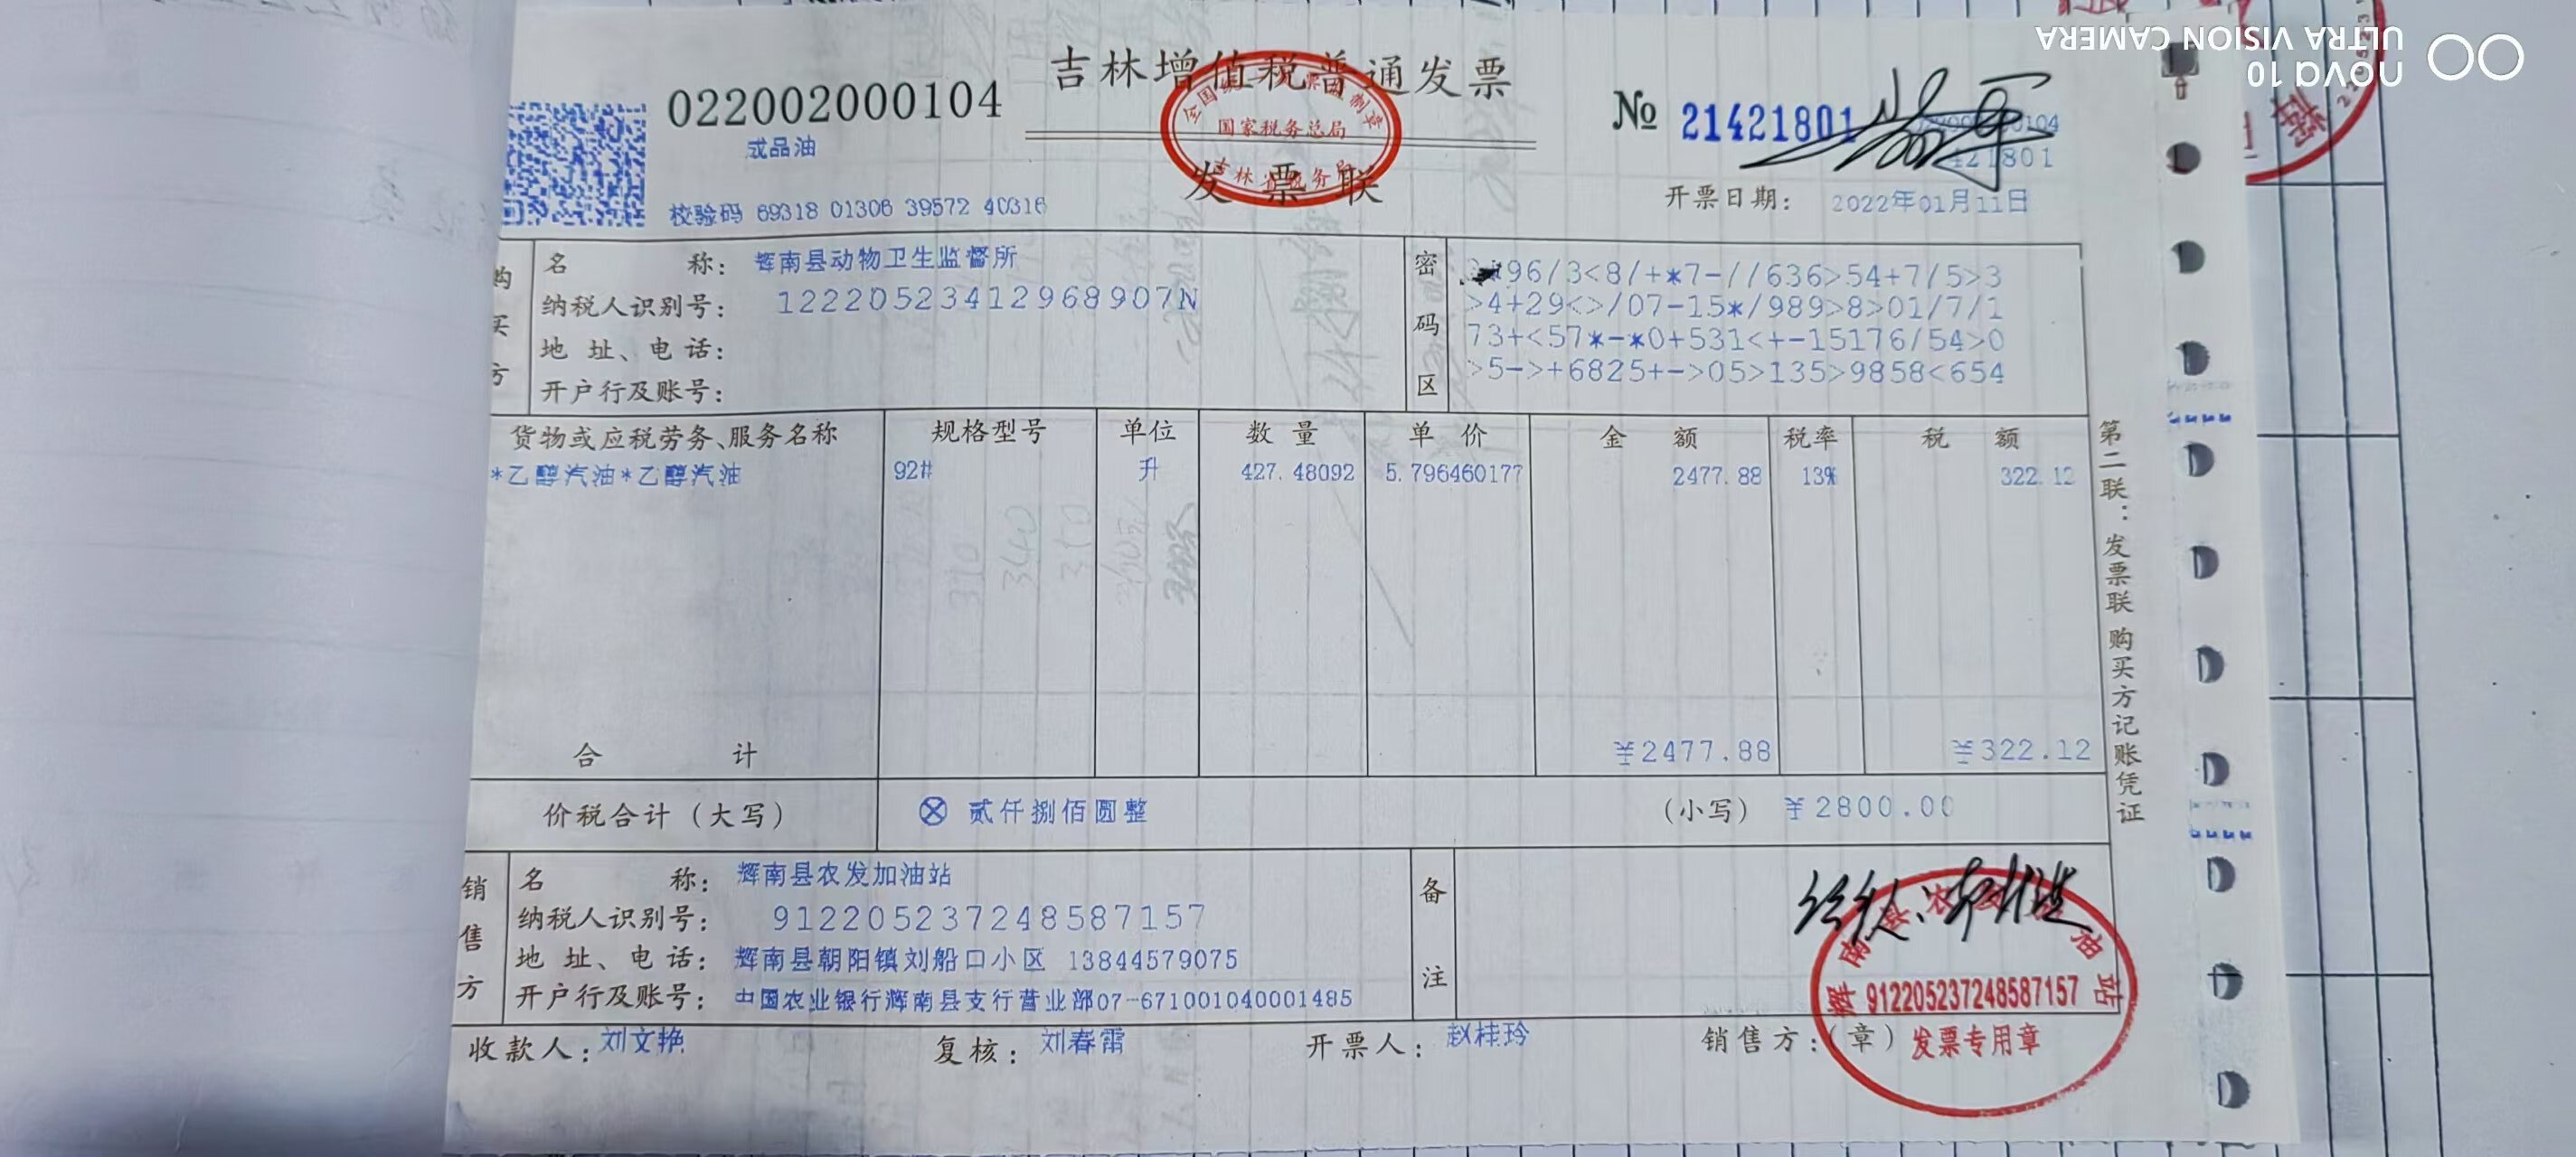 吉林增值税普通发票
022002000104
成品油
国家税务总局
发票联
№ 21421801
校验码 69318 01306 39572 40316
开票日期: 2022年01月11日
购买方
名 称: 辉南县动物卫生监督所
纳税人识别号: 12220523412968907N
地 址、电 话:
开户行及账号:
密码区
96/3<8/+*7-//636>54+7/5>3
>4+29<>/07-15*/989>8>01/7/1
73+<57*-*0+531<+-15176/54>0
>5->+6825+->05>135>9858<654
货物或应税劳务、服务名称 规格型号 单位 数 量 单 价 金 额 税率 税 额
*乙醇汽油*乙醇汽油 92# 升 427.48092 5.796460177 2477.88 13% 322.12
合 计 ¥2477.88 ¥322.12
价税合计(大写) ⊗ 贰仟捌佰圆整 (小写) ¥2800.00
销售方
名 称: 辉南县农发加油站
纳税人识别号: 912205237248587157
地 址、电 话: 辉南县朝阳镇刘船口小区 13844579075
开户行及账号: 中国农业银行辉南县支行营业部07-671001040001485
备注
收款人: 刘文艳 复核: 刘春雷 开票人: 赵桂玲 销售方:(章)
912205237248587157
发票专用章
第二联:发票联 购买方记账凭证
nova 10
ULTRA VISION CAMERA